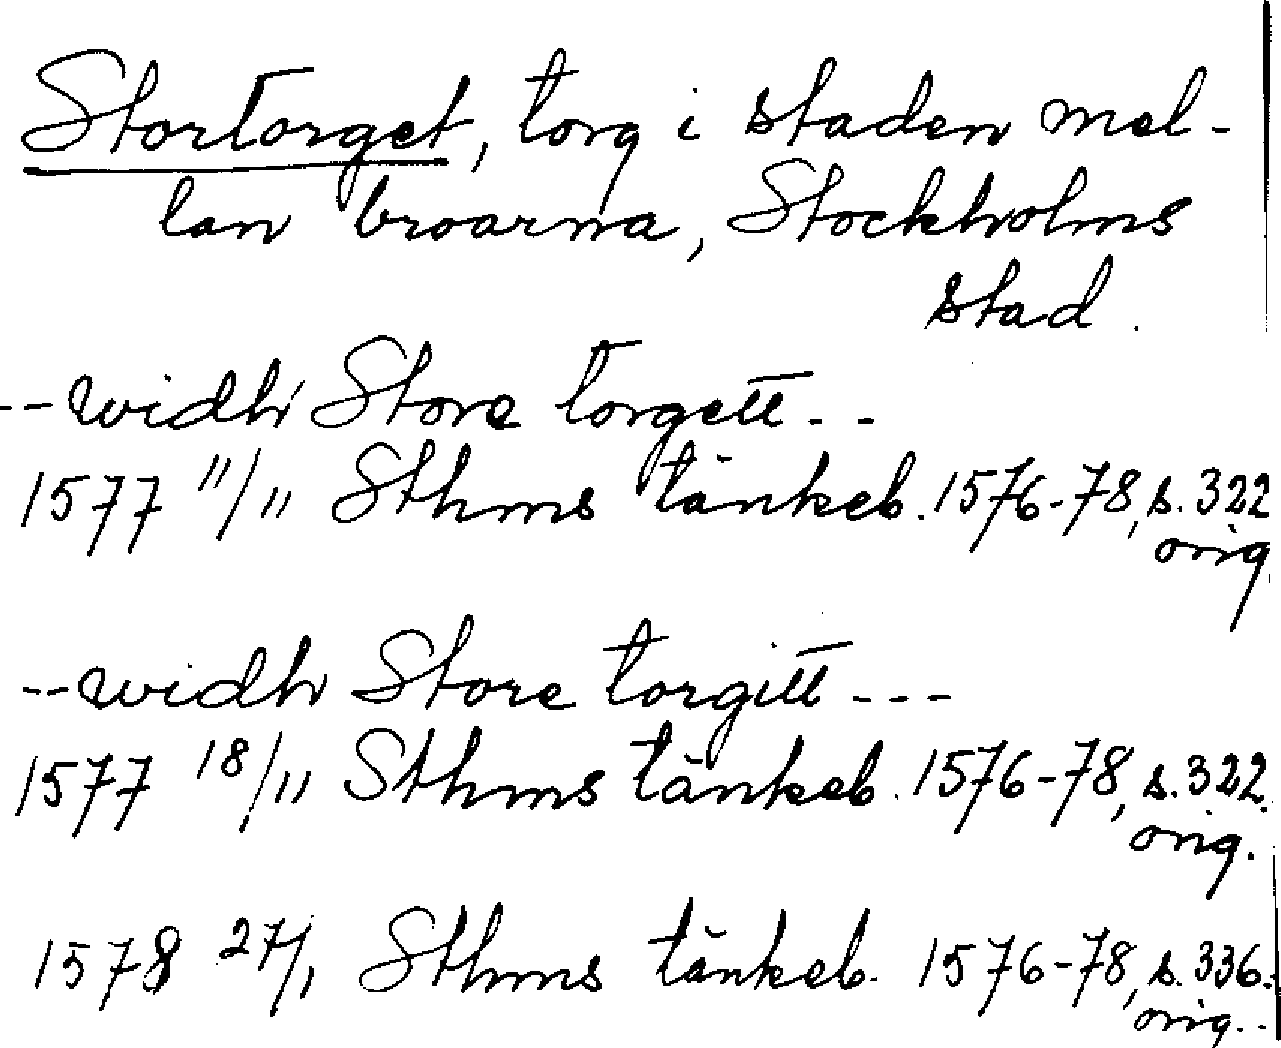 Stortorget, torg i staden mel-
lan broarna, Stockholms
stad.
--widh Store torgett--
1577 11/11 Sthms tänkeb. 1576-78, s. 322
orig
--widh Store torgitt---
1577 18/11 Sthms tänkeb. 1576-78, s. 322.
orig.
1578 27/1 Sthms tänkeb. 1576-78, s. 336.
orig.